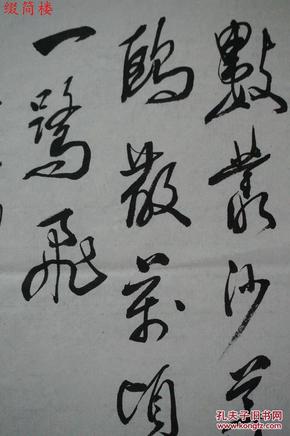 缀简楼
數叢沙草
鷗散萬頃
一鷺飛
孔夫子旧书网